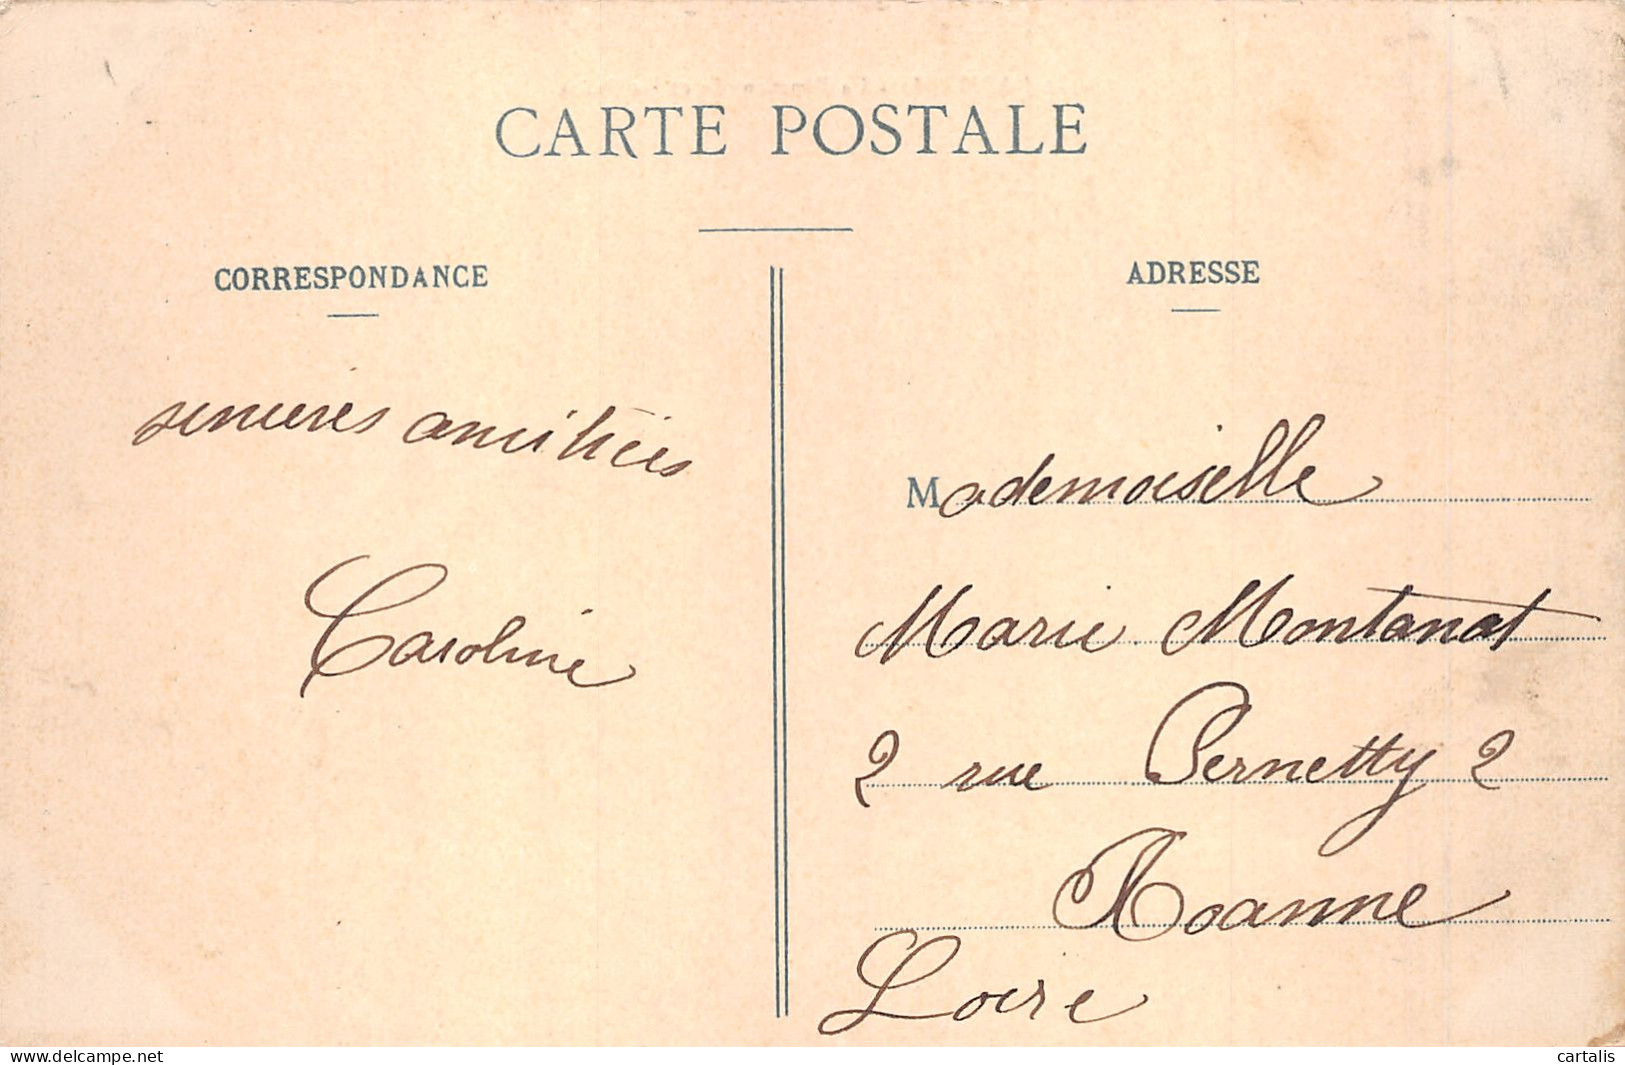 CARTE POSTALE
CORRESPONDANCE
sincères amitiées
Caroline
ADRESSE
Mademoiselle
Marie Montanat
2 rue Pernetty 2
Roanne
Loire
www.delcampe.net
cartalis